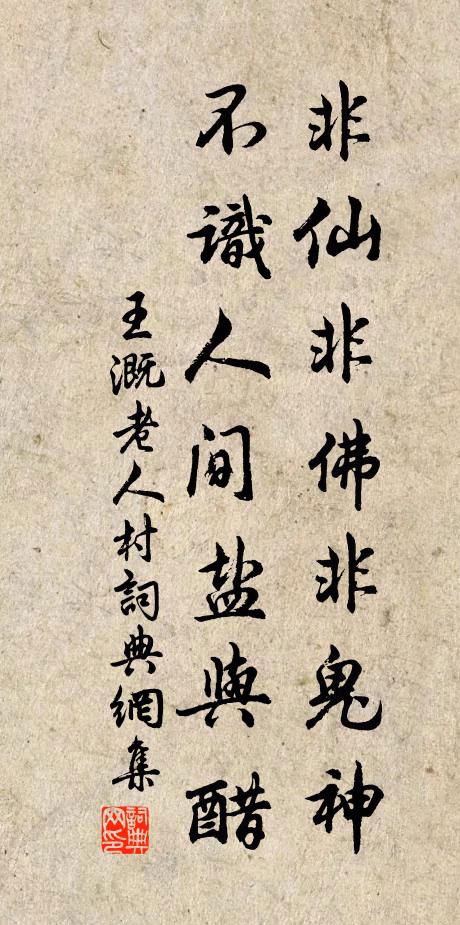 非仙非佛非鬼神
不識人间盐與醋
王溉老人村詞典網集
詞典
网印